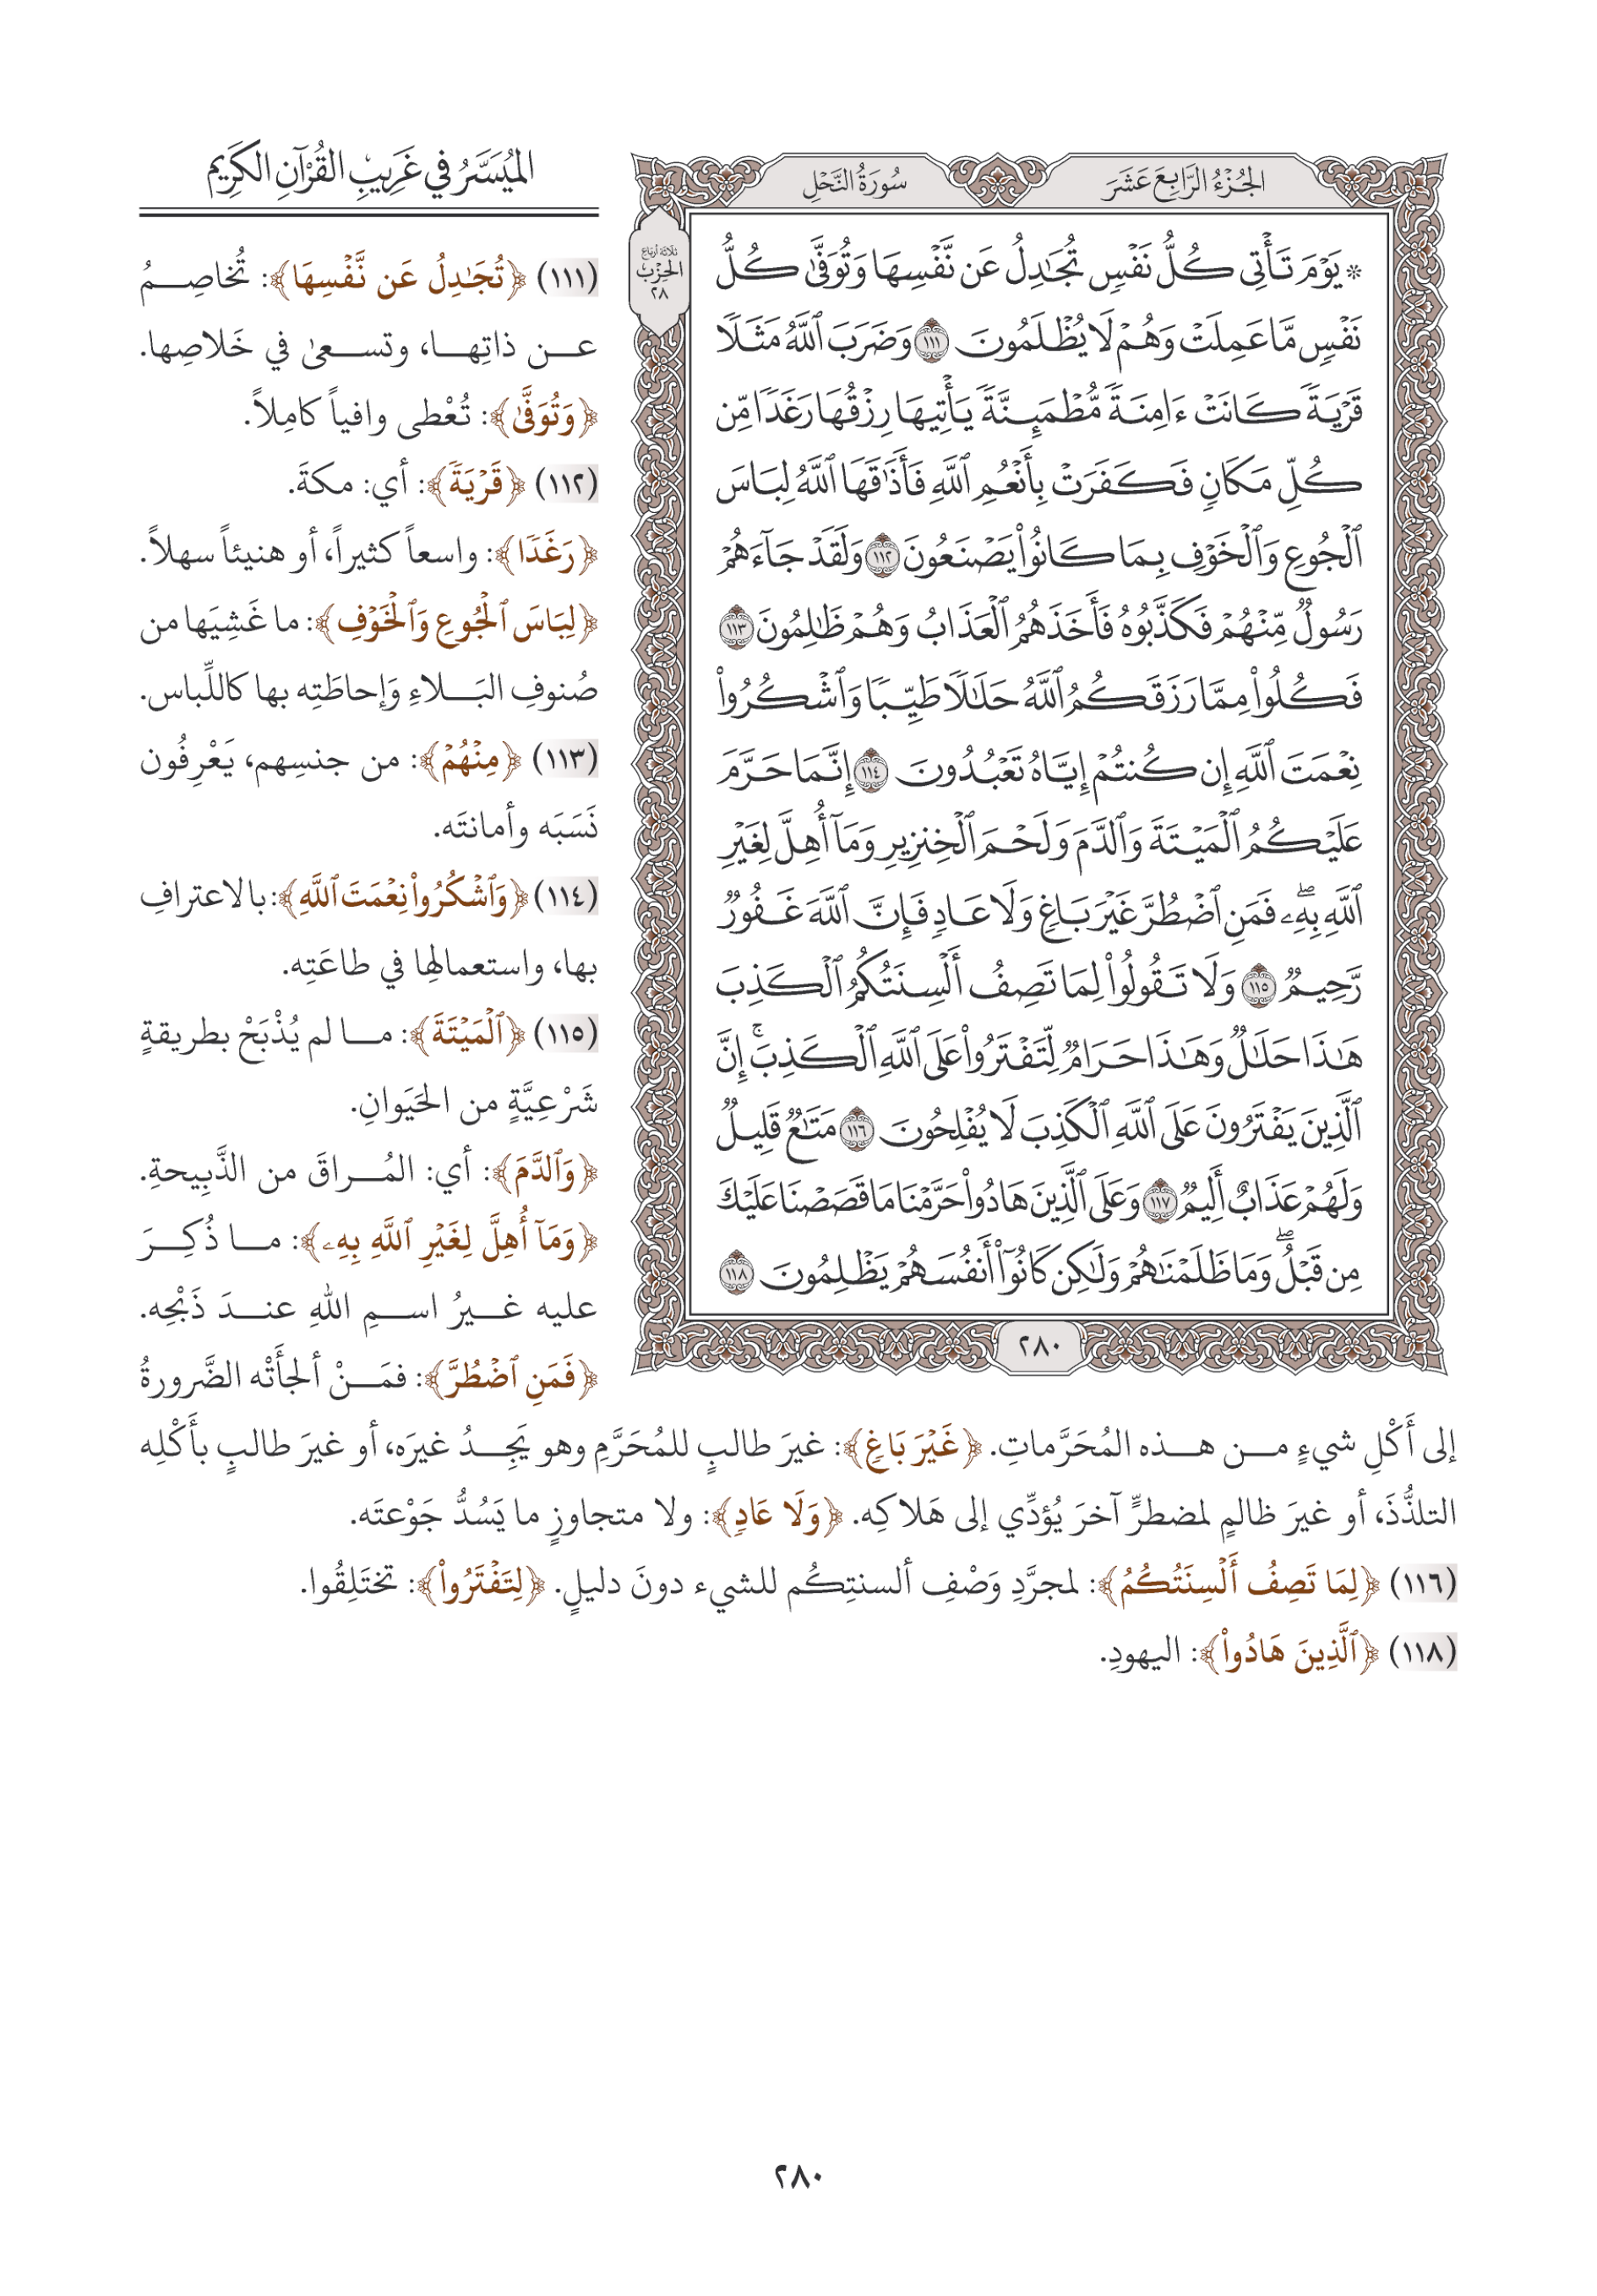 الجُزْءُ الرَّابِعَ عَشَرَ
سُورَةُ النَّحْلِ
ثلاثة أرباع
الحِزْب
٢٨
۞ يَوْمَ تَأْتِي كُلُّ نَفْسٍ تُجَٰدِلُ عَن نَّفْسِهَا وَتُوَفَّىٰ كُلُّ
نَفْسٍ مَّا عَمِلَتْ وَهُمْ لَا يُظْلَمُونَ ١١١ وَضَرَبَ ٱللَّهُ مَثَلًا
قَرْيَةً كَانَتْ ءَامِنَةً مُّطْمَئِنَّةً يَأْتِيهَا رِزْقُهَا رَغَدًا مِّن
كُلِّ مَكَانٍ فَكَفَرَتْ بِأَنْعُمِ ٱللَّهِ فَأَذَٰقَهَا ٱللَّهُ لِبَاسَ
ٱلْجُوعِ وَٱلْخَوْفِ بِمَا كَانُوا۟ يَصْنَعُونَ ١١٢ وَلَقَدْ جَآءَهُمْ
رَسُولٌ مِّنْهُمْ فَكَذَّبُوهُ فَأَخَذَهُمُ ٱلْعَذَابُ وَهُمْ ظَٰلِمُونَ ١١٣
فَكُلُوا۟ مِمَّا رَزَقَكُمُ ٱللَّهُ حَلَٰلًا طَيِّبًا وَٱشْكُرُوا۟
نِعْمَتَ ٱللَّهِ إِن كُنتُمْ إِيَّاهُ تَعْبُدُونَ ١١٤ إِنَّمَا حَرَّمَ
عَلَيْكُمُ ٱلْمَيْتَةَ وَٱلدَّمَ وَلَحْمَ ٱلْخِنزِيرِ وَمَآ أُهِلَّ لِغَيْرِ
ٱللَّهِ بِهِۦۖ فَمَنِ ٱضْطُرَّ غَيْرَ بَاغٍ وَلَا عَادٍ فَإِنَّ ٱللَّهَ غَفُورٌ
رَّحِيمٌ ١١٥ وَلَا تَقُولُوا۟ لِمَا تَصِفُ أَلْسِنَتُكُمُ ٱلْكَذِبَ
هَٰذَا حَلَٰلٌ وَهَٰذَا حَرَامٌ لِّتَفْتَرُوا۟ عَلَى ٱللَّهِ ٱلْكَذِبَۚ إِنَّ
ٱلَّذِينَ يَفْتَرُونَ عَلَى ٱللَّهِ ٱلْكَذِبَ لَا يُفْلِحُونَ ١١٦ مَتَٰعٌ قَلِيلٌ
وَلَهُمْ عَذَابٌ أَلِيمٌ ١١٧ وَعَلَى ٱلَّذِينَ هَادُوا۟ حَرَّمْنَا مَا قَصَصْنَا عَلَيْكَ
مِن قَبْلُۖ وَمَا ظَلَمْنَٰهُمْ وَلَٰكِن كَانُوٓا۟ أَنفُسَهُمْ يَظْلِمُونَ ١١٨
٢٨٠
المُيَسَّرُ في غَرِيبِ القُرْآنِ الكَرِيم
(١١١) ﴿تُجَٰدِلُ عَن نَّفْسِهَا﴾: تُخاصِمُ
عن ذاتِها، وتسعىٰ في خَلاصِها.
﴿وَتُوَفَّىٰ﴾: تُعْطى وافياً كامِلاً.
(١١٢) ﴿قَرْيَةً﴾: أي: مكةَ.
﴿رَغَدًا﴾: واسعاً كثيراً، أو هنيئاً سهلاً.
﴿لِبَاسَ ٱلْجُوعِ وَٱلْخَوْفِ﴾: ما غَشِيَها من
صُنوفِ البَلاءِ وَإحاطَتِه بها كاللِّباس.
(١١٣) ﴿مِنْهُمْ﴾: من جنسِهم، يَعْرِفُون
نَسَبَه وأمانتَه.
(١١٤) ﴿وَٱشْكُرُوا۟ نِعْمَتَ ٱللَّهِ﴾: بالاعترافِ
بها، واستعمالِها في طاعَتِه.
(١١٥) ﴿ٱلْمَيْتَةَ﴾: ما لم يُذْبَحْ بطريقةٍ
شَرْعِيَّةٍ من الحَيَوانِ.
﴿وَٱلدَّمَ﴾: أي: المُراقَ من الذَّبِيحةِ.
﴿وَمَآ أُهِلَّ لِغَيْرِ ٱللَّهِ بِهِۦ﴾: ما ذُكِرَ
عليه غيرُ اسمِ اللهِ عندَ ذَبْحِه.
﴿فَمَنِ ٱضْطُرَّ﴾: فمَنْ ألجأَتْه الضَّرورةُ
إلى أَكْلِ شيءٍ من هذه المُحَرَّماتِ. ﴿غَيْرَ بَاغٍ﴾: غيرَ طالبٍ للمُحَرَّمِ وهو يَجِدُ غيرَه، أو غيرَ طالبٍ بأَكْلِه
التلذُّذَ، أو غيرَ ظالمٍ لمضطرٍّ آخرَ يُؤدِّي إلى هَلاكِه. ﴿وَلَا عَادٍ﴾: ولا متجاوزٍ ما يَسُدُّ جَوْعتَه.
(١١٦) ﴿لِمَا تَصِفُ أَلْسِنَتُكُمُ﴾: لمجرَّدِ وَصْفِ ألسنتِكُم للشيء دونَ دليلٍ. ﴿لِتَفْتَرُوا۟﴾: تختَلِقُوا.
(١١٨) ﴿ٱلَّذِينَ هَادُوا۟﴾: اليهودِ.
٢٨٠